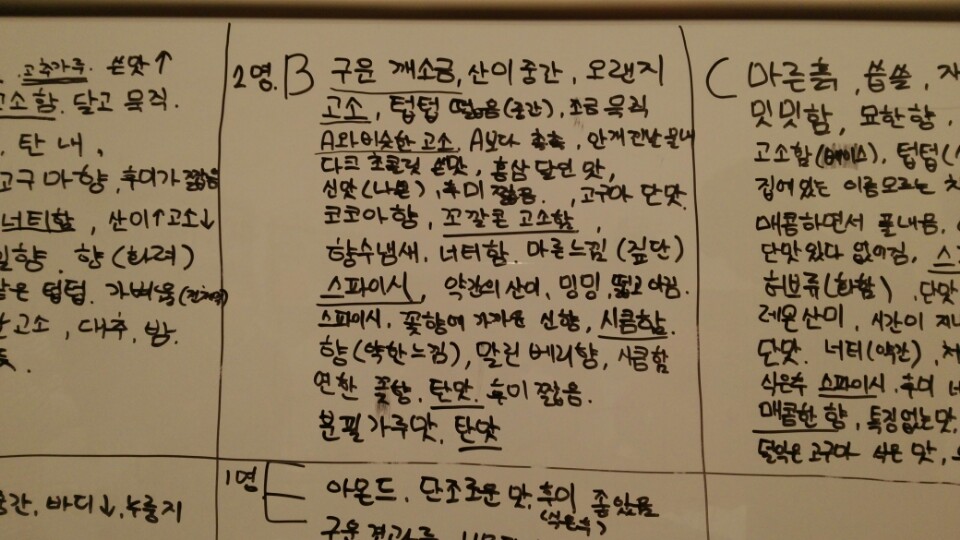 고추가루. 쓴맛↑
고소함. 달고 묵직.
탄 내,
고구마향, 후미가 짧음
너티함, 산미↑고소↓
향. 향(화려)
텁텁. 가벼움
고소, 대추, 밤.
2명. B 구운 깨소금, 산미중간, 오랜지
고소, 텁텁 떫음(중간), 조금 묵직
A와비슷한 고소, A보다
다크 초콜릿 쓴맛, 홍삼 달인 맛,
신맛(나쁜), 후미 짧음. , 고구마 단맛.
코코아향, 꼬깔콘 고소함,
향수냄새. 너티함. 마른느낌 (짚단)
스파이시, 약간의 산미, 밍밍, 떫고 아림.
스파이시. 꽃향에 가까운 신향, 시큼함.
향(약한느낌), 말린 베리향, 시큼함
연한 꽃향. 탄맛. 후미 짧음.
분필가루맛. 탄맛
C 마른흙, 씁쓸,
밋밋함, 묘한향,
고소함(베이스), 텁텁(
집에있는 이름모르는
매콤하면서 풀내음,
단맛있다 없어짐,
허브류(화함), 단맛
레몬산미, 시간이 지
단맛. 너티(약간),
식은후 스파이시. 후미
매콤한 향, 특징없는맛,
덜익은 고구마 식은 맛,
중간, 바디↓, 누룽지
1명 아몬드. 단조로운 맛, 후미 좋았음
(식은후)
구운 견과류,